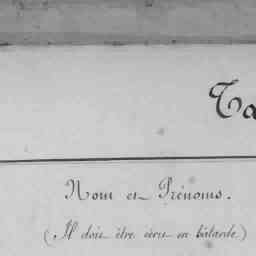 Ta
Nom et Prénoms.
(Il doit être écrit en bâtarde)